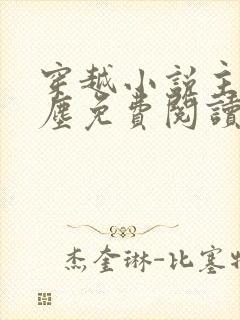 穿越小說主
塵免費閱讀
杰奎琳-比塞特